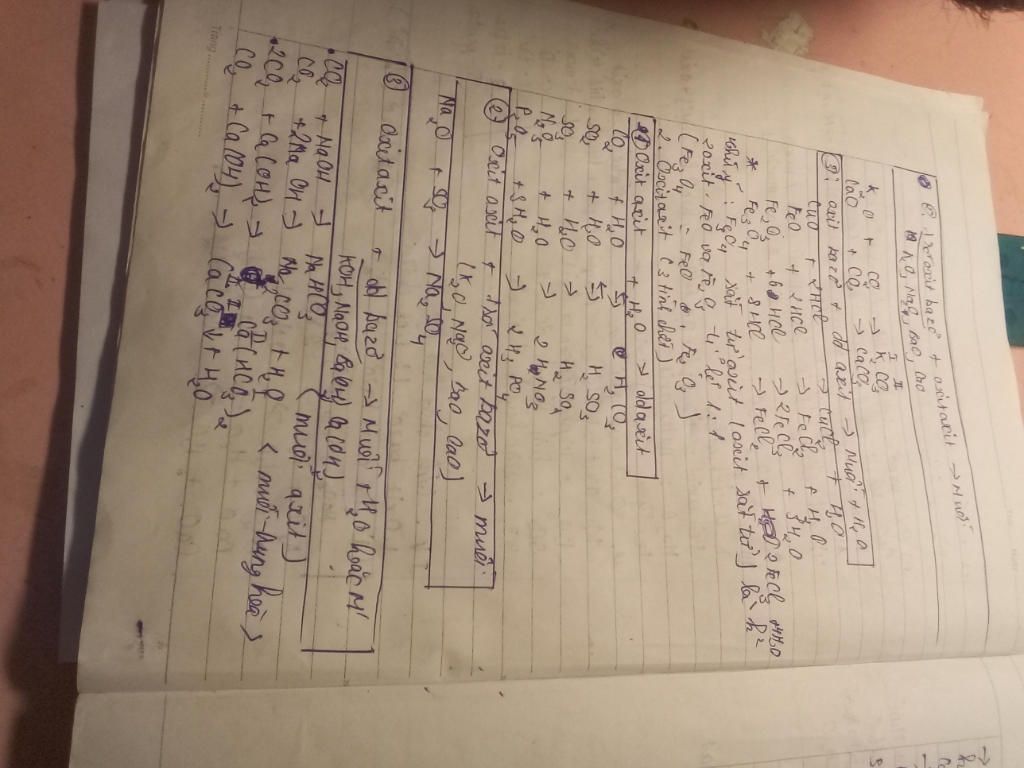 ② 1 số oxit bazơ + oxit axit → Muối
K₂O, Na₂O, BaO, CaO
K₂O + CO₂ → K₂CO₃
CaO + CO₂ → CaCO₃
③ oxit bazơ + dd axit → Muối + H₂O
CuO + 2HCl → CuCl₂ + H₂O
FeO + 2HCl → FeCl₂ + H₂O
Fe₂O₃ + 6HCl → 2FeCl₃ + 3H₂O
* Fe₃O₄ + 8HCl → FeCl₂ + 2FeCl₃ + 4H₂O
Fe₃O₄ sắt từ oxit (oxit sắt từ) là h²
2 oxit FeO và Fe₂O₃ tỉ lệ 1:1
(Fe₃O₄ = FeO . Fe₂O₃)
2. Oxit axit (3 tính chất)
① Oxit axit + H₂O → dd axit
CO₂ + H₂O ⇆ H₂CO₃
SO₂ + H₂O ⇆ H₂SO₃
SO₃ + H₂O → H₂SO₄
N₂O₅ + H₂O → 2HNO₃
P₂O₅ + 3H₂O → 2H₃PO₄
② Oxit axit + 1 số oxit bazơ → muối
(K₂O, Na₂O, BaO, CaO)
Na₂O + SO₃ → Na₂SO₄
③ oxit axit + dd bazơ → Muối + H₂O hoặc M'
KOH, NaOH, Ba(OH)₂, Ca(OH)₂
• CO₂ + NaOH → NaHCO₃ (muối axit)
CO₂ + 2NaOH → Na₂CO₃ + H₂O < muối trung hoà >
• 2CO₂ + Ca(OH)₂ → Ca(HCO₃)₂
CO₂ + Ca(OH)₂ → CaCO₃↓ + H₂O
Trang